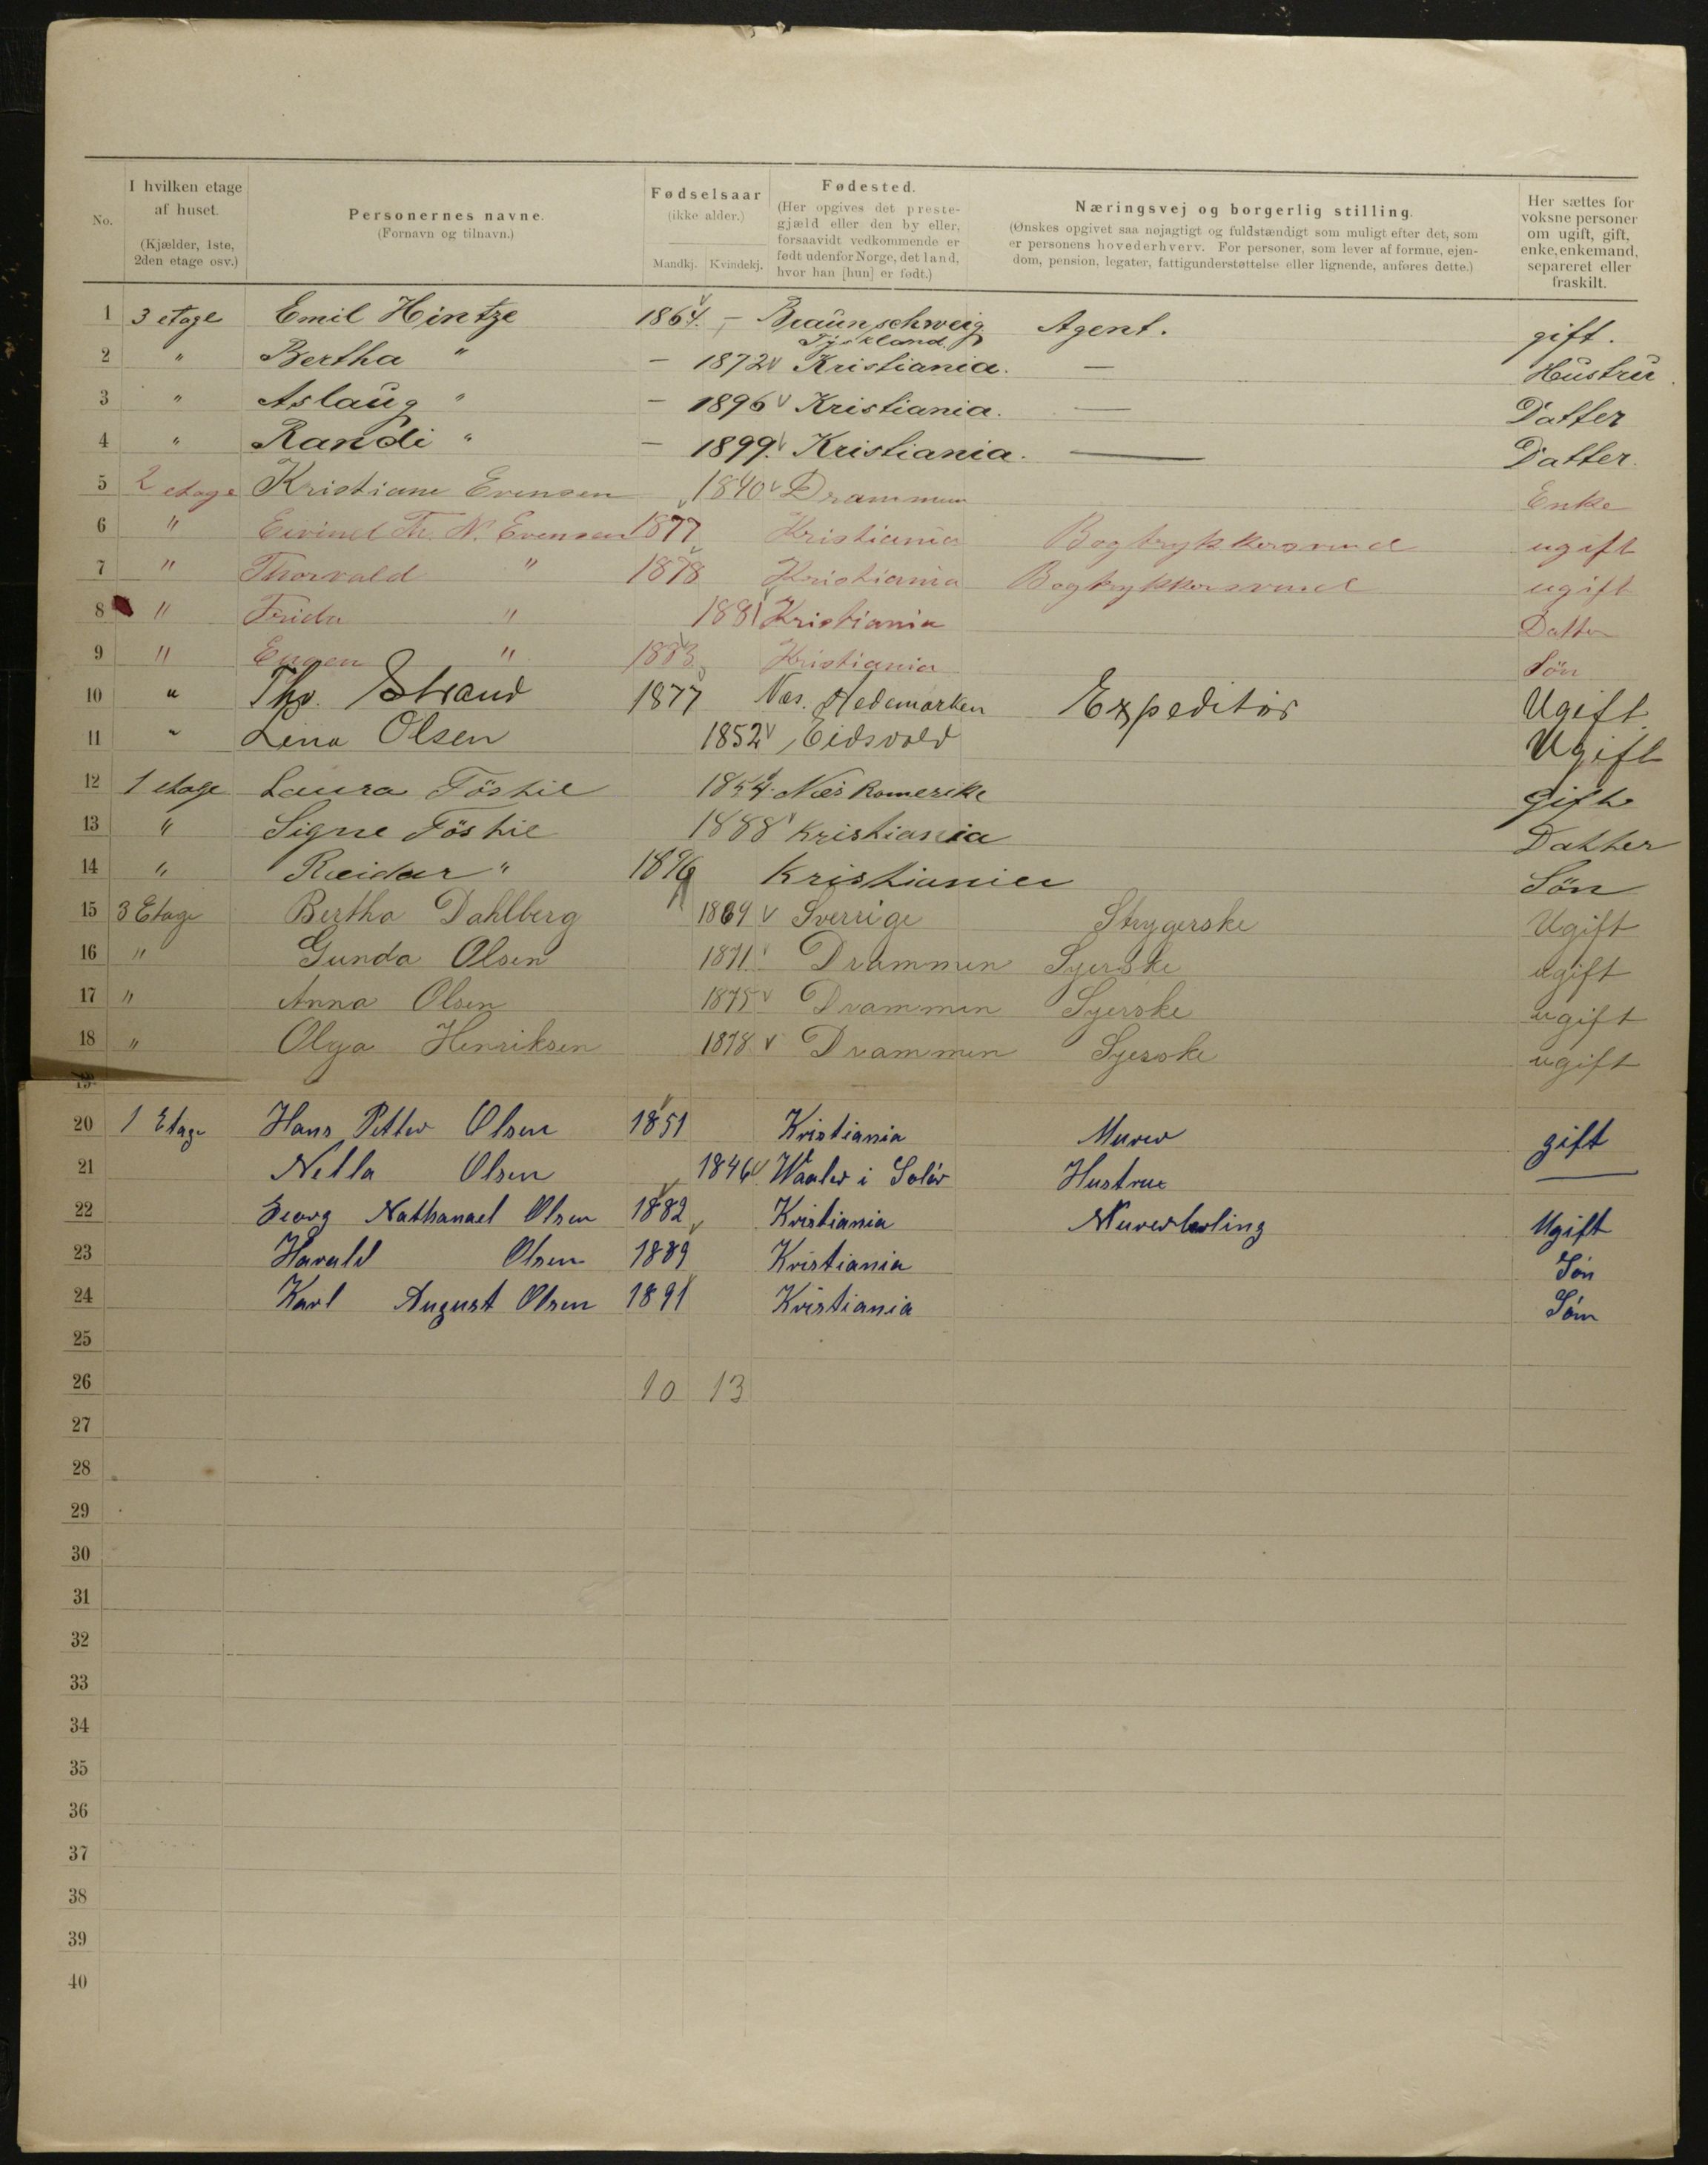 No. I hvilken etage af huset. (Kjælder, 1ste, 2den etage osv.) Personernes navne. (Fornavn og tilnavn.) Fødselsaar (ikke alder.) Mandkj. Kvindekj. Fødested. (Her opgives det prestegjæld eller den by eller, forsaavidt vedkommende er født udenfor Norge, det land, hvor han [hun] er født.) Næringsvej og borgerlig stilling. (Ønskes opgivet saa nøjagtigt og fuldstændigt som muligt efter det, som er personens hovederhverv. For personer, som lever af formue, ejendom, pension, legater, fattigunderstøttelse eller lignende, anføres dette.) Her sættes for voksne personer om ugift, gift, enke, enkemand, separeret eller fraskilt.
1 3 etage Emil Hintze 1864. — Braunschweig Tyskland. Agent. gift.
2 " Bertha " — 1872 Kristiania. — Hustru.
3 " Aslaug " — 1896 Kristiania. — Datter
4 " Randi " — 1899. Kristiania. — Datter.
5 2 etage Kristiane Evensen 1840 Drammen Enke
6 " Eivind Th. N. Evensen 1877 Kristiania Bogtrykkersvend ugift
7 " Thorvald " 1878 Kristiania Bogtrykkersvend ugift
8 " Frida " 1881 Kristiania Datter
9 " Eugen " 1883 Kristiania Søn
10 " Thv. Strand 1877 Nes. Hedemarken Expeditør Ugift
11 " Lina Olsen 1852 Eidsvold Ugift
12 1 etage Laura Töstie 1854. Næs Romerike gift
13 " Signe Töstie 1888 Kristiania Datter
14 " Reidar " 1896 Kristiania Sön
15 3 Etage Bertha Dahlberg 1869 Sverrige Strygerske Ugift
16 " Gunda Olsen 1871. Drammen Syerske ugift
17 " Anna Olsen 1875 Drammen Syerske ugift
18 " Olga Henriksen 1878 Drammen Syerske ugift
19
20 1 Etage Hans Petter Olsen 1851 Kristiania Murer gift
21 Netta Olsen 1846 Waaler i Solør Hustrue —
22 Georg Nathanael Olsen 1882 Kristiania Murerlærling Ugift
23 Harald Olsen 1889 Kristiania Søn
24 Karl August Olsen 1891 Kristiania Søn
25
26 10 13
27
28
29
30
31
32
33
34
35
36
37
38
39
40